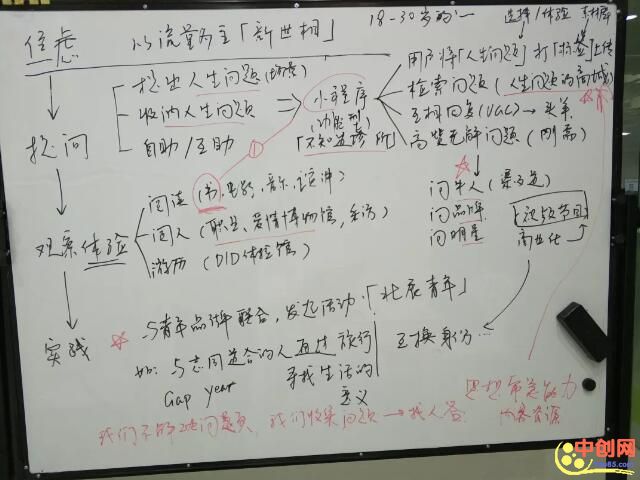 焦虑 以流量为主「新世相」 18-30岁的
选择/体验
提出人生问题(场景)
收纳人生问题
自助/互助
小程序
(功能型)
「不知道诊所」
①
用户将「人生问题」打「标签」上传
检索问题(人生问题的商城)
互相回复(UGC)→
高赞无解问题(刚需)
提问
问牛人
问品牌
问明星
视频节目
商业化
观察体验
阅读(书、电影、音乐、
阅人(职业、爱情博物馆、
游历(DID体验馆)
实践
与青年品牌联合,发起活动·「北辰青年」
如:与志同道合的人再过 旅行
Gap year 寻找生活的
意义
互换身份...
我们不解决问题,我们收集问题→找人答
内容资源
中创网